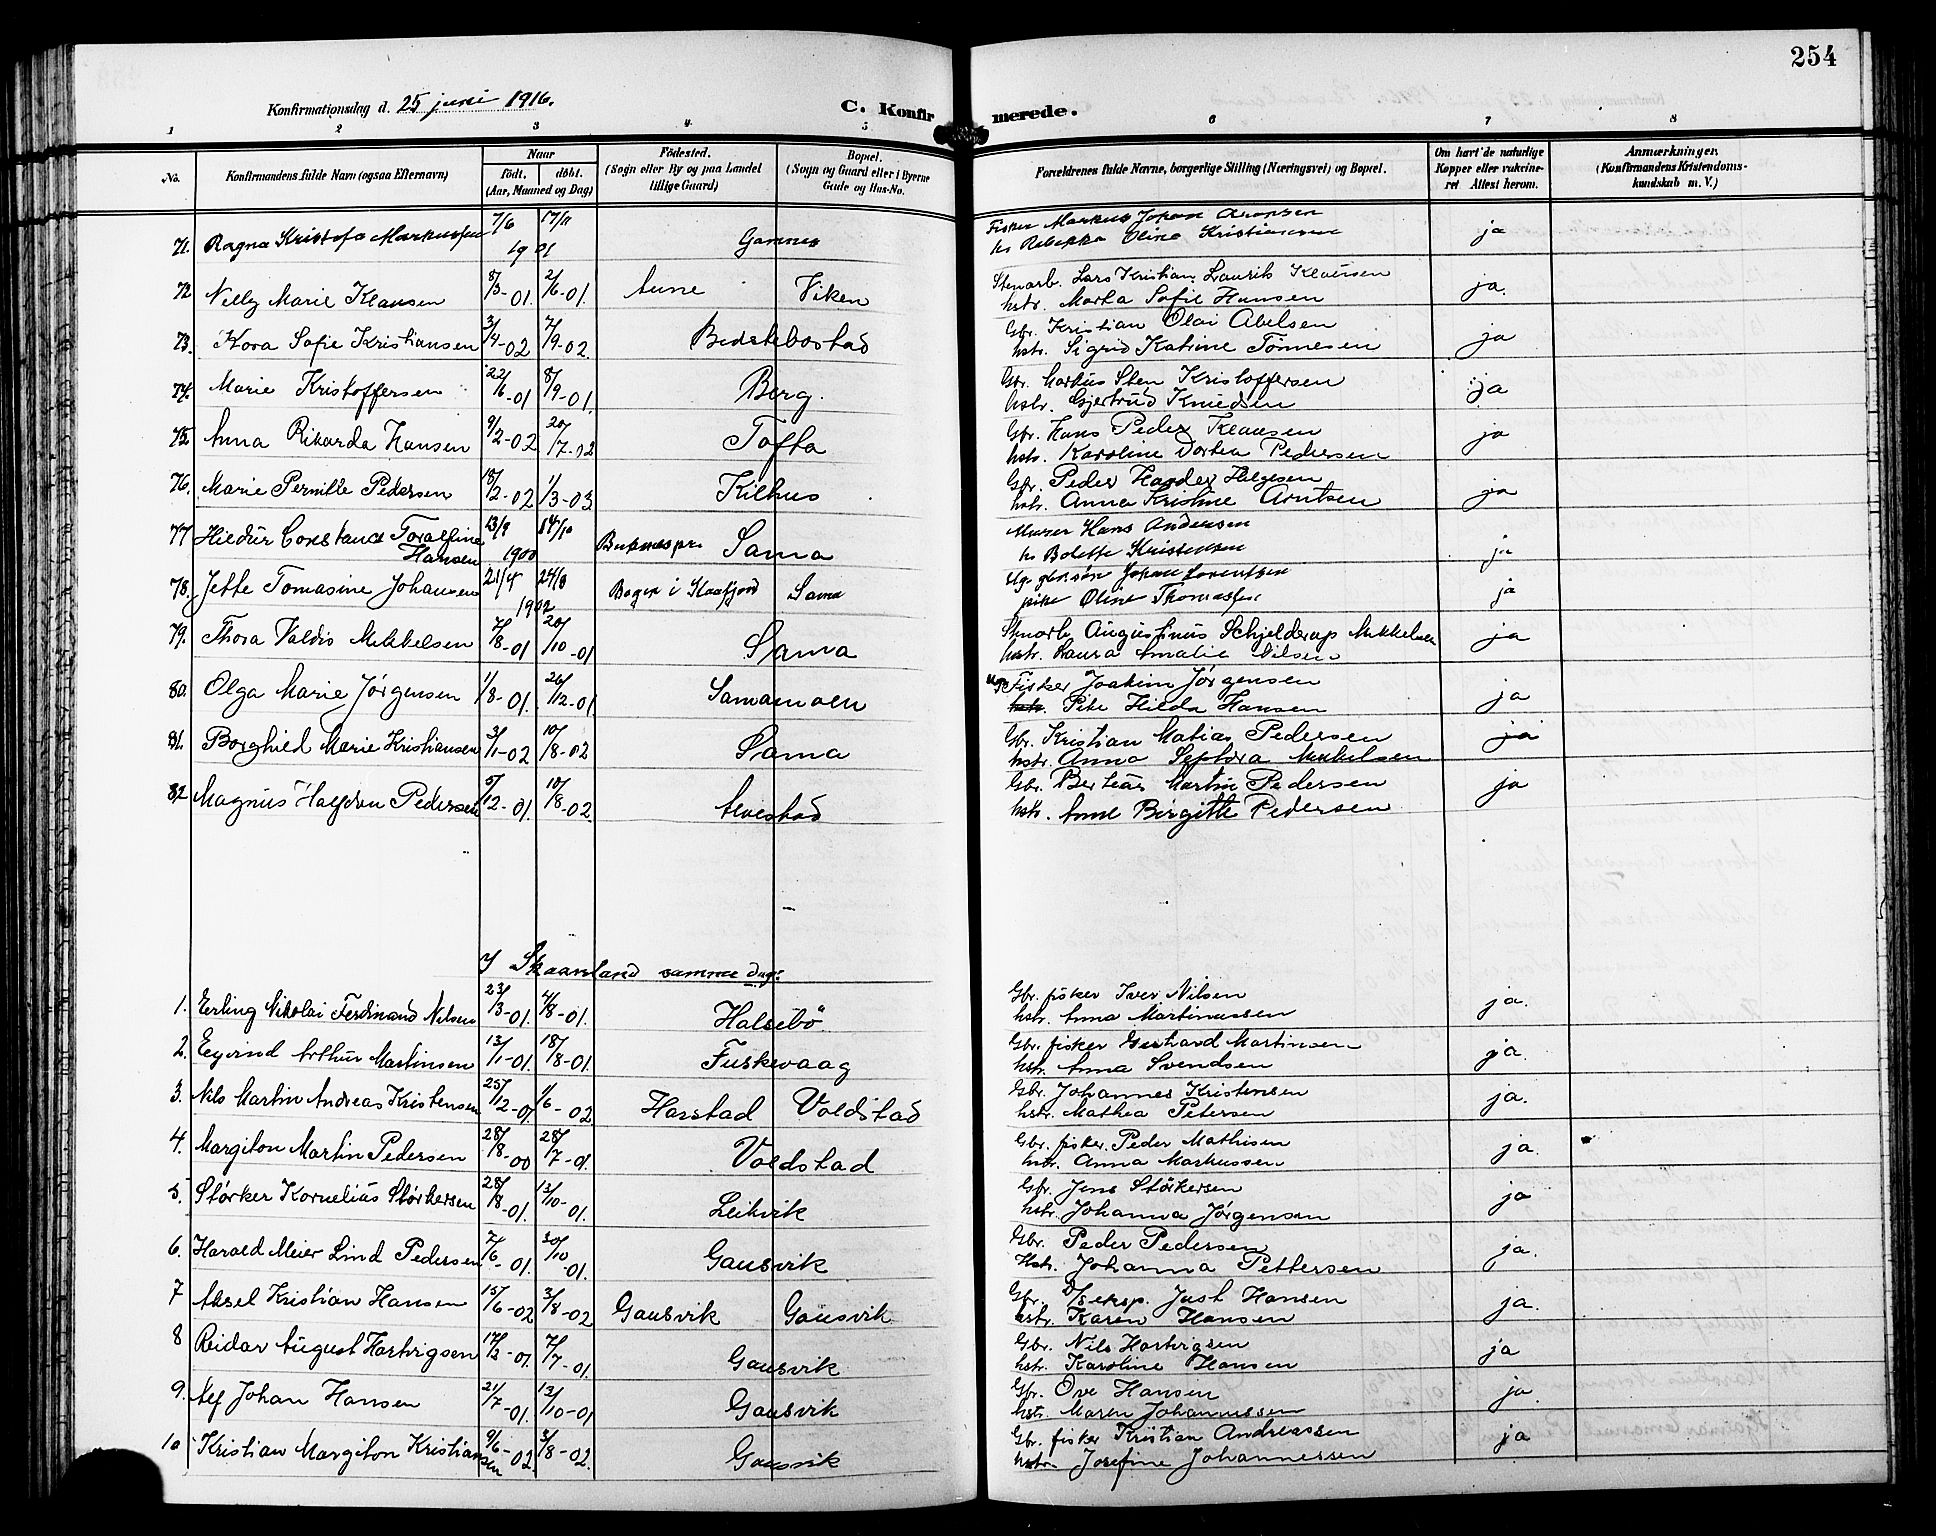 254
Konfirmationsdag d. 25 juni 1916.
C. Konfirmerede.
1 2 3 4 5 6 7 8
No. Konfirmandens fulde Navn (ogsaa Efternavn) Naar født. døbt. (Aar, Maaned og Dag) Fødested. (Sogn eller By og paa Landet tillige Gaard) Bopæl. (Sogn og Gaard eller i Byerne Gade og Hus-No. Forældrenes fulde Navne, borgerlige Stilling (Næringsvei) og Bopæl. Om havt de naturlige Kopper eller vakcineret Attest herom. Anmærkninger. (Konfirmandens Kristendomskundskab m. V.)
71. Ragna Kristofa Markussen 7/6 17/11 1901 Gamnes Fisker Markus Johan Aronsen ja
hs Rebekka Oline Kristiansen
72 Nelly Marie Klausen 8/3-01. 2/6-01. Aune Viken Stenarb. Lars Kristian Laurits Klausen ja.
hstr. Marta Sofie Hansen
73. Kora Sofie Kristiansen 3/4-02 7/9-02. Bedstebostad Gbr. Kristian Olai Abelsen ja
hstr. Sigrid Katrine Tønnesen
74. Marie Kristoffersen 22/6-01 8/9-01. Berg. Gbr. Markus Sten Kristoffersen ja
hstr. Gjertrud Knudsen
75. Anna Rikarda Hansen 9/2-02 20/7-02 Tofta Gbr. Hans Peder Klausen ja
hstr. Karoline Dortea Pedersen
76. Marie Pernille Pedersen 18/2-02 1/3-03 Kilhus Gbr. Peder Harder Helgesen ja
hstr. Anna Kristine Arntsen
77 Hildur Constance Toralfine Hansen 23/9 14/10 1900 Buknespr. Sama Murer Hans Andersen ja
hs Bolette Kristensen
78. Jette Tomasine Johansen 21/4 24/8 1902 Bogen i Kaafjord Sama Ug. gbr.søn Johan Lorentsen ja
pike Oline Thomassen
79. Thora Valdis Mikkelsen 7/8-01 20/10-01 Sama Stenarb. Augustinus Schjelderup Mikkelsen ja
hstr. Laura Amalie Nilsen
80. Olga Marie Jørgensen 1/8-01. 26/12-01. Samamoen Ug. Fisker Joakim Jørgensen ja
Pike Hilda Hansen
81. Borghild Marie Kristiansen 3/1-02 10/8-02 Sama Gbr. Kristian Matias Pedersen ja
hstr. Anna Septora Mikkelsen
82 Magnus Halfdan Pedersen 5/12-01. 10/8-02. Alvestad Gbr. Berteus Martin Pedersen ja
hstr. Anne Birgitte Pedersen
I Skaanland samme dag:
1. Erling Nikolai Ferdinand Nilsen 23/3-01. 4/8-01. Halsebö Gbr. fisker Iver Nilsen ja.
hstr. Anna Martinussen
2. Eyvind Arthur Martinsen 13/1-01. 18/8-01. Fuskevaag Gbr. fisker Gerhard Martinsen ja.
hstr. Anna Svendsen
3. Nils Martin Andreas Kristensen 25/12-01. 1/6-02 Harstad Voldstad Gbr. Johannes Kristensen ja.
hstr. Mathea Petersen
4. Margiton Martin Pedersen 28/8-00 28/7-01. Voldstad Gbr. fisker. Peder Mathisen ja.
hstr. Anna Markussen
5. Størker Kornelius Størkersen 28/8-01. 13/10-01. Leikvik Gbr. Jens Størkersen ja
hstr. Johanna Jørgensen
6. Harald Meier Lind Pedersen 7/6-01. 20/10-01. Gausvik Gbr. Peder Pedersen ja.
Hstr. Johanna Pettersen
7 Aksel Kristian Hansen 15/6-02 3/8-02 Gausvik Gausvik Gbr. D/S eksp. Just Hansen ja.
hstr. Karen Hansen
8 Reidar August Hartvigsen 17/3-01. 7/7-01. Gausvik Gbr. Nils Hartvigsen ja
hstr. Karoline Hansen
9. Alf Johan Hansen 21/7-01. 13/10-01 Gausvik Gbr. Ove Hansen ja
hstr. Maren Johannessen
10 Kristian Margiton Kristiansen 9/6-02. 3/8-02. Gausvik Gbr. fisker Kristian Andreassen ja
hstr. Josefine Johannessen